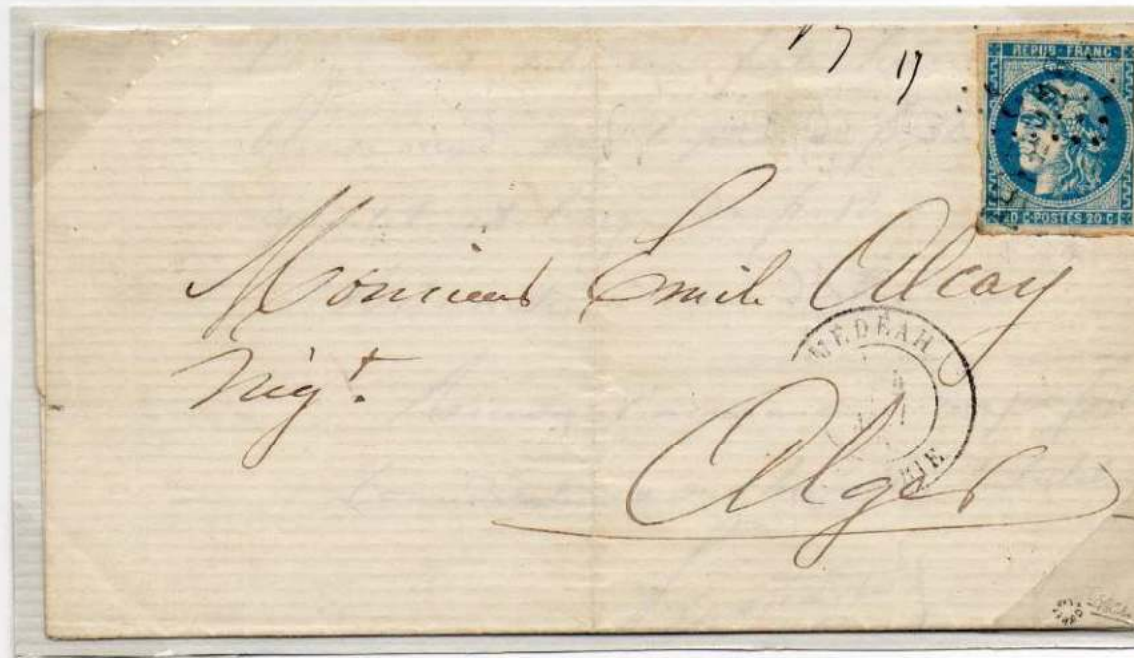 17 17
REPUB·FRANC·
20·C·POSTES·20·C·
Monsieur Emile Alcay
Nég.t
MÉDÉAH
Alger